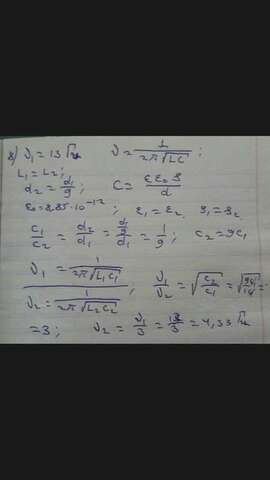 8) ν₁ = 13 Гц   ν = 1/(2π√LC);
L₁ = L₂;
d₂ = d₁/9;   C = εε₀S/d
ε₀ = 8.85·10⁻¹²;   ε₁ = ε₂   S₁ = S₂
c₁/c₂ = d₂/d₁ = (d₁/9)/d₁ = 1/9;   c₂ = 9c₁
ν₁ = 1/(2π√L₁C₁) / ν₂ = 1/(2π√L₂C₂);   ν₁/ν₂ = √(c₂/c₁) =
= 3;   ν₂ = ν₁/3 = 13/3 = 4,33 Гц